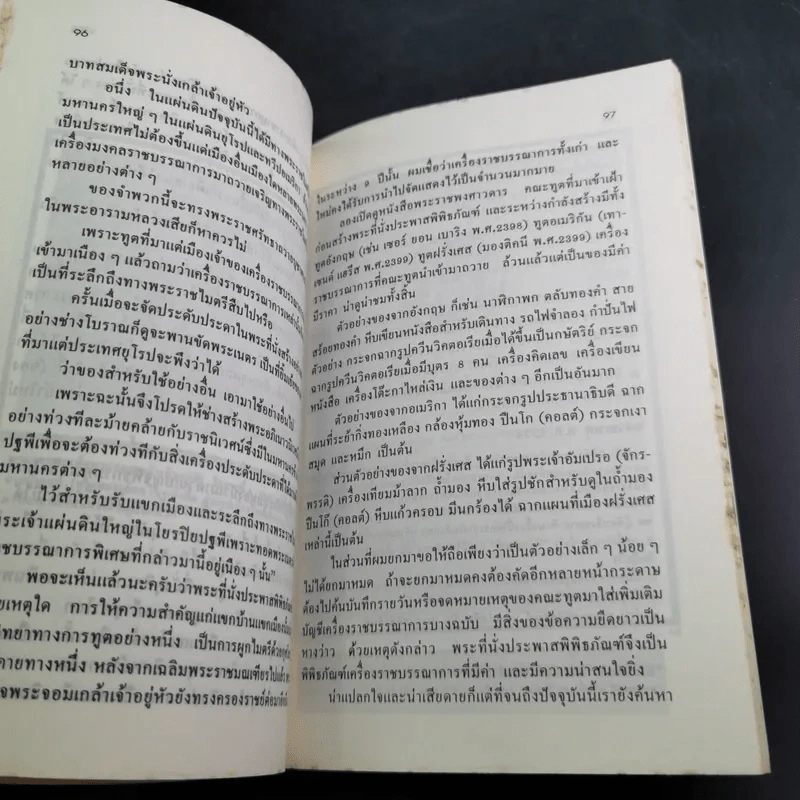 96
บาทสมเด็จพระนั่งเกล้าเจ้าอยู่หัว
อนึ่ง ในแผ่นดินปัจจุบันนี้ได้มีทางพระราช
มหานครใหญ่ ๆ ในแผ่นดินยุโรปและทวีปอเมริกา
เป็นประเทศไม่ต้องขึ้นแต่เมืองอื่นเมืองใดหลาย
เครื่องมงคลราชบรรณาการมาถวายเจริญทางพระราช
หลายอย่างต่าง ๆ
ของจำพวกนี้จะทรงพระราชศรัทธาถวาย
ในพระอารามหลวงเสียก็หาควรไม่
เพราะทูตที่มาแต่เมืองเจ้าของเครื่องราชบรรณา
เข้ามาเนือง ๆ แล้วถามว่าเครื่องราชบรรณาการเหล่านั้น
เป็นที่ระลึกถึงทางพระราชไมตรีสืบไปหรือ
ครั้นเมื่อจะจัดประดับประดาในพระที่นั่งสร้าง
อย่างช่างโบราณก็ดูจะพานขัดพระเนตร เป็นที่
ที่มาแต่ประเทศยุโรปจะพึงว่าได้
ว่าของสำหรับใช้อย่างอื่น เอามาใช้อย่างอื่น
เพราะฉะนั้นจึงโปรดให้ช่างสร้างพระอภิเนาว์
อย่างท่วงทีละม้ายคล้ายกับราชนิเวศน์ซึ่งมีในมหานคร
ปฐพีเพื่อจะต้องท่วงทีกับสิ่งเครื่องประดับประดาที่ได้มา
มหานครต่าง ๆ
ไว้สำหรับรับแขกเมืองและระลึกถึงทางพระราช
พระเจ้าแผ่นดินใหญ่ในโยรปิยปฐพีเพราะทอดพระเนตร
ราชบรรณาการพิเศษที่กล่าวมานี้อยู่เนือง ๆ นั้น"
พอจะเห็นแล้วนะครับว่าพระที่นั่งประพาสพิพิธภัณฑ์
ยเหตุใด การให้ความสำคัญแก่แขกบ้านแขกเมือง
ทยาทางการทูตอย่างหนึ่ง เป็นการผูกไมตรีด้วย
ายทางหนึ่ง หลังจากเฉลิมพระราชมณเฑียรไปแล้ว
จพระจอมเกล้าเจ้าอยู่หัวยังทรงครองราชย์ต่อมา
97
ในระหว่าง 9 ปีนั้น ผมเชื่อว่าเครื่องราชบรรณาการทั้งเก่า และ
ใหม่คงได้รับการนำไปจัดแสดงไว้เป็นจำนวนมากมาย
ลองเปิดดูหนังสือพระราชพงศาวดาร คณะทูตที่มาเข้าเฝ้า
ก่อนสร้างพระที่นั่งประพาสพิพิธภัณฑ์ และระหว่างกำลังสร้างมีทั้ง
ทูตอังกฤษ (เช่น เซอร์ ยอน เบาริง พ.ศ.2398) ทูตอเมริกัน (เทา-
เซนต์ แฮรีส พ.ศ.2399) ทูตฝรั่งเศส (มองติคนี พ.ศ.2399) เครื่อง
ราชบรรณาการที่คณะทูตนำเข้ามาถวาย ล้วนแล้วแต่เป็นของมีค่า
มีราคา น่าดูน่าชมทั้งสิ้น
ตัวอย่างของจากอังกฤษ ก็เช่น นาฬิกาพก ตลับทองคำ สาย
สร้อยทองคำ หีบเขียนหนังสือสำหรับเดินทาง รถไฟจำลอง กำปั่นไฟ
ตัวอย่าง กระจกฉากรูปควีนวิคตอเรียเมื่อได้ขึ้นเป็นกษัตริย์ กระจก
ฉากรูปควีนวิคตอเรียเมื่อมีบุตร 8 คน เครื่องคิดเลข เครื่องเขียน
หนังสือ เครื่องโต๊ะกาไหล่เงิน และของต่าง ๆ อีกเป็นอันมาก
ตัวอย่างของจากอเมริกา ได้แก่กระจกรูปประธานาธิบดี ฉาก
แผนที่ระย้ากิ่งทองเหลือง กล้องหุ้มทอง ปืนโก (คอลต์) กระจกเงา
สมุด และหมึก เป็นต้น
ส่วนตัวอย่างของจากฝรั่งเศส ได้แก่รูปพระเจ้าอัมเปรอ (จักร-
พรรดิ) เครื่องเทียมม้าลาก ถ้ำมอง หีบใส่รูปชักสำหรับดูในถ้ำมอง
ปืนโก๊ (คอลต์) หีบแก้วครอบ มีนกร้องได้ ฉากแผนที่เมืองฝรั่งเศส
เหล่านี้เป็นต้น
ในส่วนที่ผมยกมาขอให้ถือเพียงว่าเป็นตัวอย่างเล็ก ๆ น้อย ๆ
ไม่ได้ยกมาหมด ถ้าจะยกมาหมดคงต้องคัดอีกหลายหน้ากระดาษ
ต้องไปค้นบันทึกรายวันหรือจดหมายเหตุของคณะทูตมาใส่เพิ่มเติม
บัญชีเครื่องราชบรรณาการบางฉบับ มีสิ่งของข้อความยืดยาวเป็น
หางว่าว ด้วยเหตุดังกล่าว พระที่นั่งประพาสพิพิธภัณฑ์จึงเป็น
พิพิธภัณฑ์เครื่องราชบรรณาการที่มีค่า และมีความน่าสนใจยิ่ง
น่าแปลกใจและน่าเสียดายก็แต่ที่จนถึงปัจจุบันนี้เรายังค้นหา